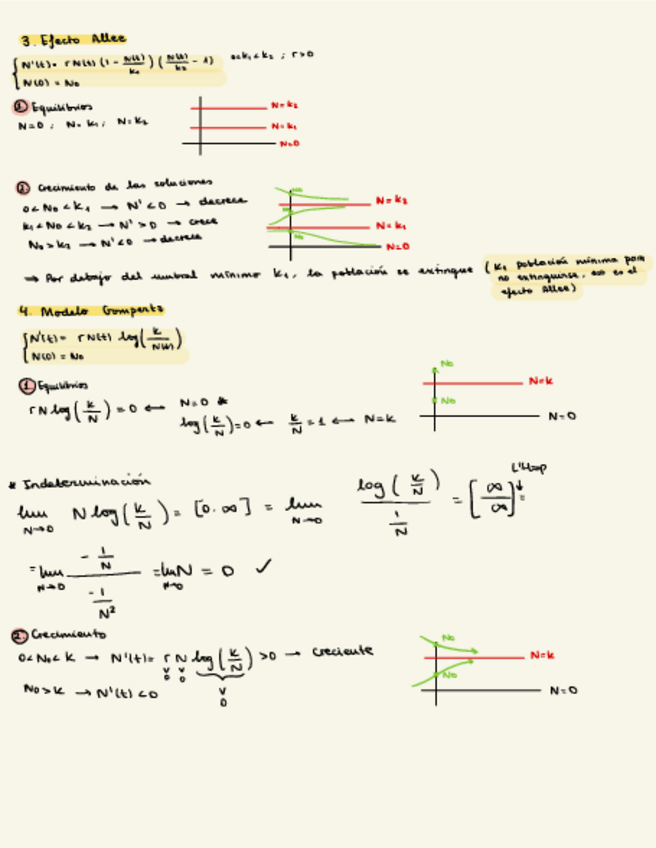 3. Efecto Allee
N'(t) = r N(t) (1 - N(t)/K₁) (N(t)/K₂ - 1) 0<K₁<K₂ ; r>0
N(0) = N₀
① Equilibrios
N=0 ; N=K₁ ; N=K₂
N=K₂
N=K₁
N=0
② Crecimiento de las soluciones
0<N₀<K₁ → N'<0 → decrece
K₁<N₀<K₂ → N'>0 → crece
N₀>K₂ → N'<0 → decrece
N=K₂
N=K₁
N=0
⇒ Por debajo del umbral mínimo K₁, la población se extingue (K₁ población mínima para
no extinguirse, eso es el
efecto Allee)
4. Modelo Gompertz
N'(t) = r N(t) log(K/N(t))
N(0) = N₀
① Equilibrios
r N log(K/N) = 0 ← N=0 *
log(K/N)=0 ← K/N=1 ← N=K
N₀
N=K
N₀
N=0
* Indeterminación
lim N→0 N log(K/N) = [0·∞] = lim N→0 log(K/N) / (1/N) = [∞/∞] L'Hop =
= lim N→0 (-1/N) / (-1/N²) = lim N→0 N = 0 ✓
② Crecimiento
0<N₀<K → N'(t) = r N log(K/N) >0 → creciente
N₀>K → N'(t)<0
N₀
N=K
N₀
N=0